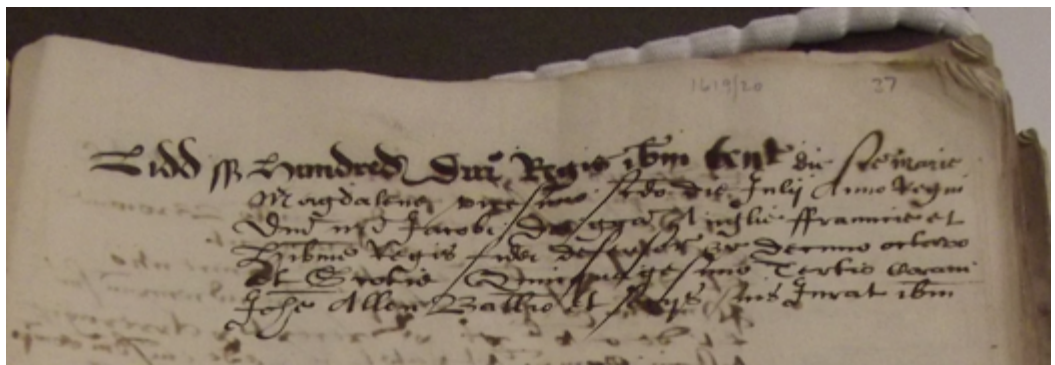 1619/20 27
Lidd ss Hundred Dni Regis ibm tent die Ste Marie
Magdalene vicesimo scdo die Julij Anno Regni
Dni nri Jacobi Dei gra Anglie ffrauncie et
Hibnie Regis fidei defensor &c decimo octavo
et Scotie Quinquagesimo Tertio coram
Johe Allen Ballio et Jur suis Jurat ibm